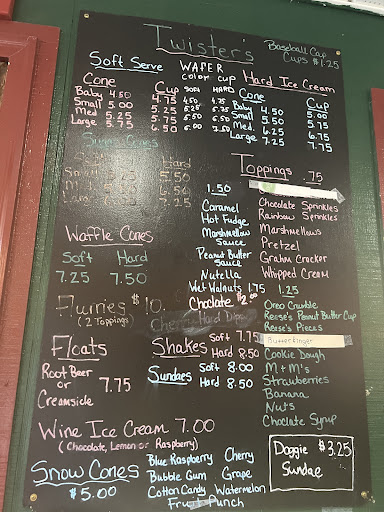 Twister's
Baseball Cap
Cups $1.25
Soft Serve
Cone Cup
Baby 4.50 4.75
Small 5.00 5.25
Med 5.25 5.75
Large 5.75 6.50
WAFER
color cup
SOFT HARD
4.50 4.75
Hard Ice Cream
Cone Cup
Baby 4.50 5.00
Small 5.75
Med. 6.25 6.75
Large 7.25 7.75
Hard
5.50
6.50
7.25
Waffle Cones
Soft Hard
7.25 7.50
Flurries $10.
(2 Toppings)
Floats
Root Beer
or 7.75
Creamsicle
1.50
Caramel
Hot Fudge
Marshmellow
Sauce
Peanut Butter
Sauce
Nutella
Wet Walnuts 1.75
Chocolate $2.00
Cherry Hard Dips
Shakes Soft 7.75
Hard 8.50
Sundaes Soft 8.00
Hard 8.50
Toppings .75
Chocolate Sprinkles
Rainbow Sprinkles
Marshmellows
Pretzel
Grahm Cracker
Whipped Cream
1.25
Oreo Crumble
Reese's Peanut Butter Cup
Reese's Pieces
Butterfinger
Cookie Dough
M+M's
Strawberries
Banana
Nuts
Choclate Syrup
Wine Ice Cream 7.00
(Chocolate, Lemon or Raspberry)
Snow Cones
$5.00
Blue Raspberry Cherry
Bubble Gum Grape
Cotton Candy Watermelon
Fruit Punch
Doggie $3.25
Sundae